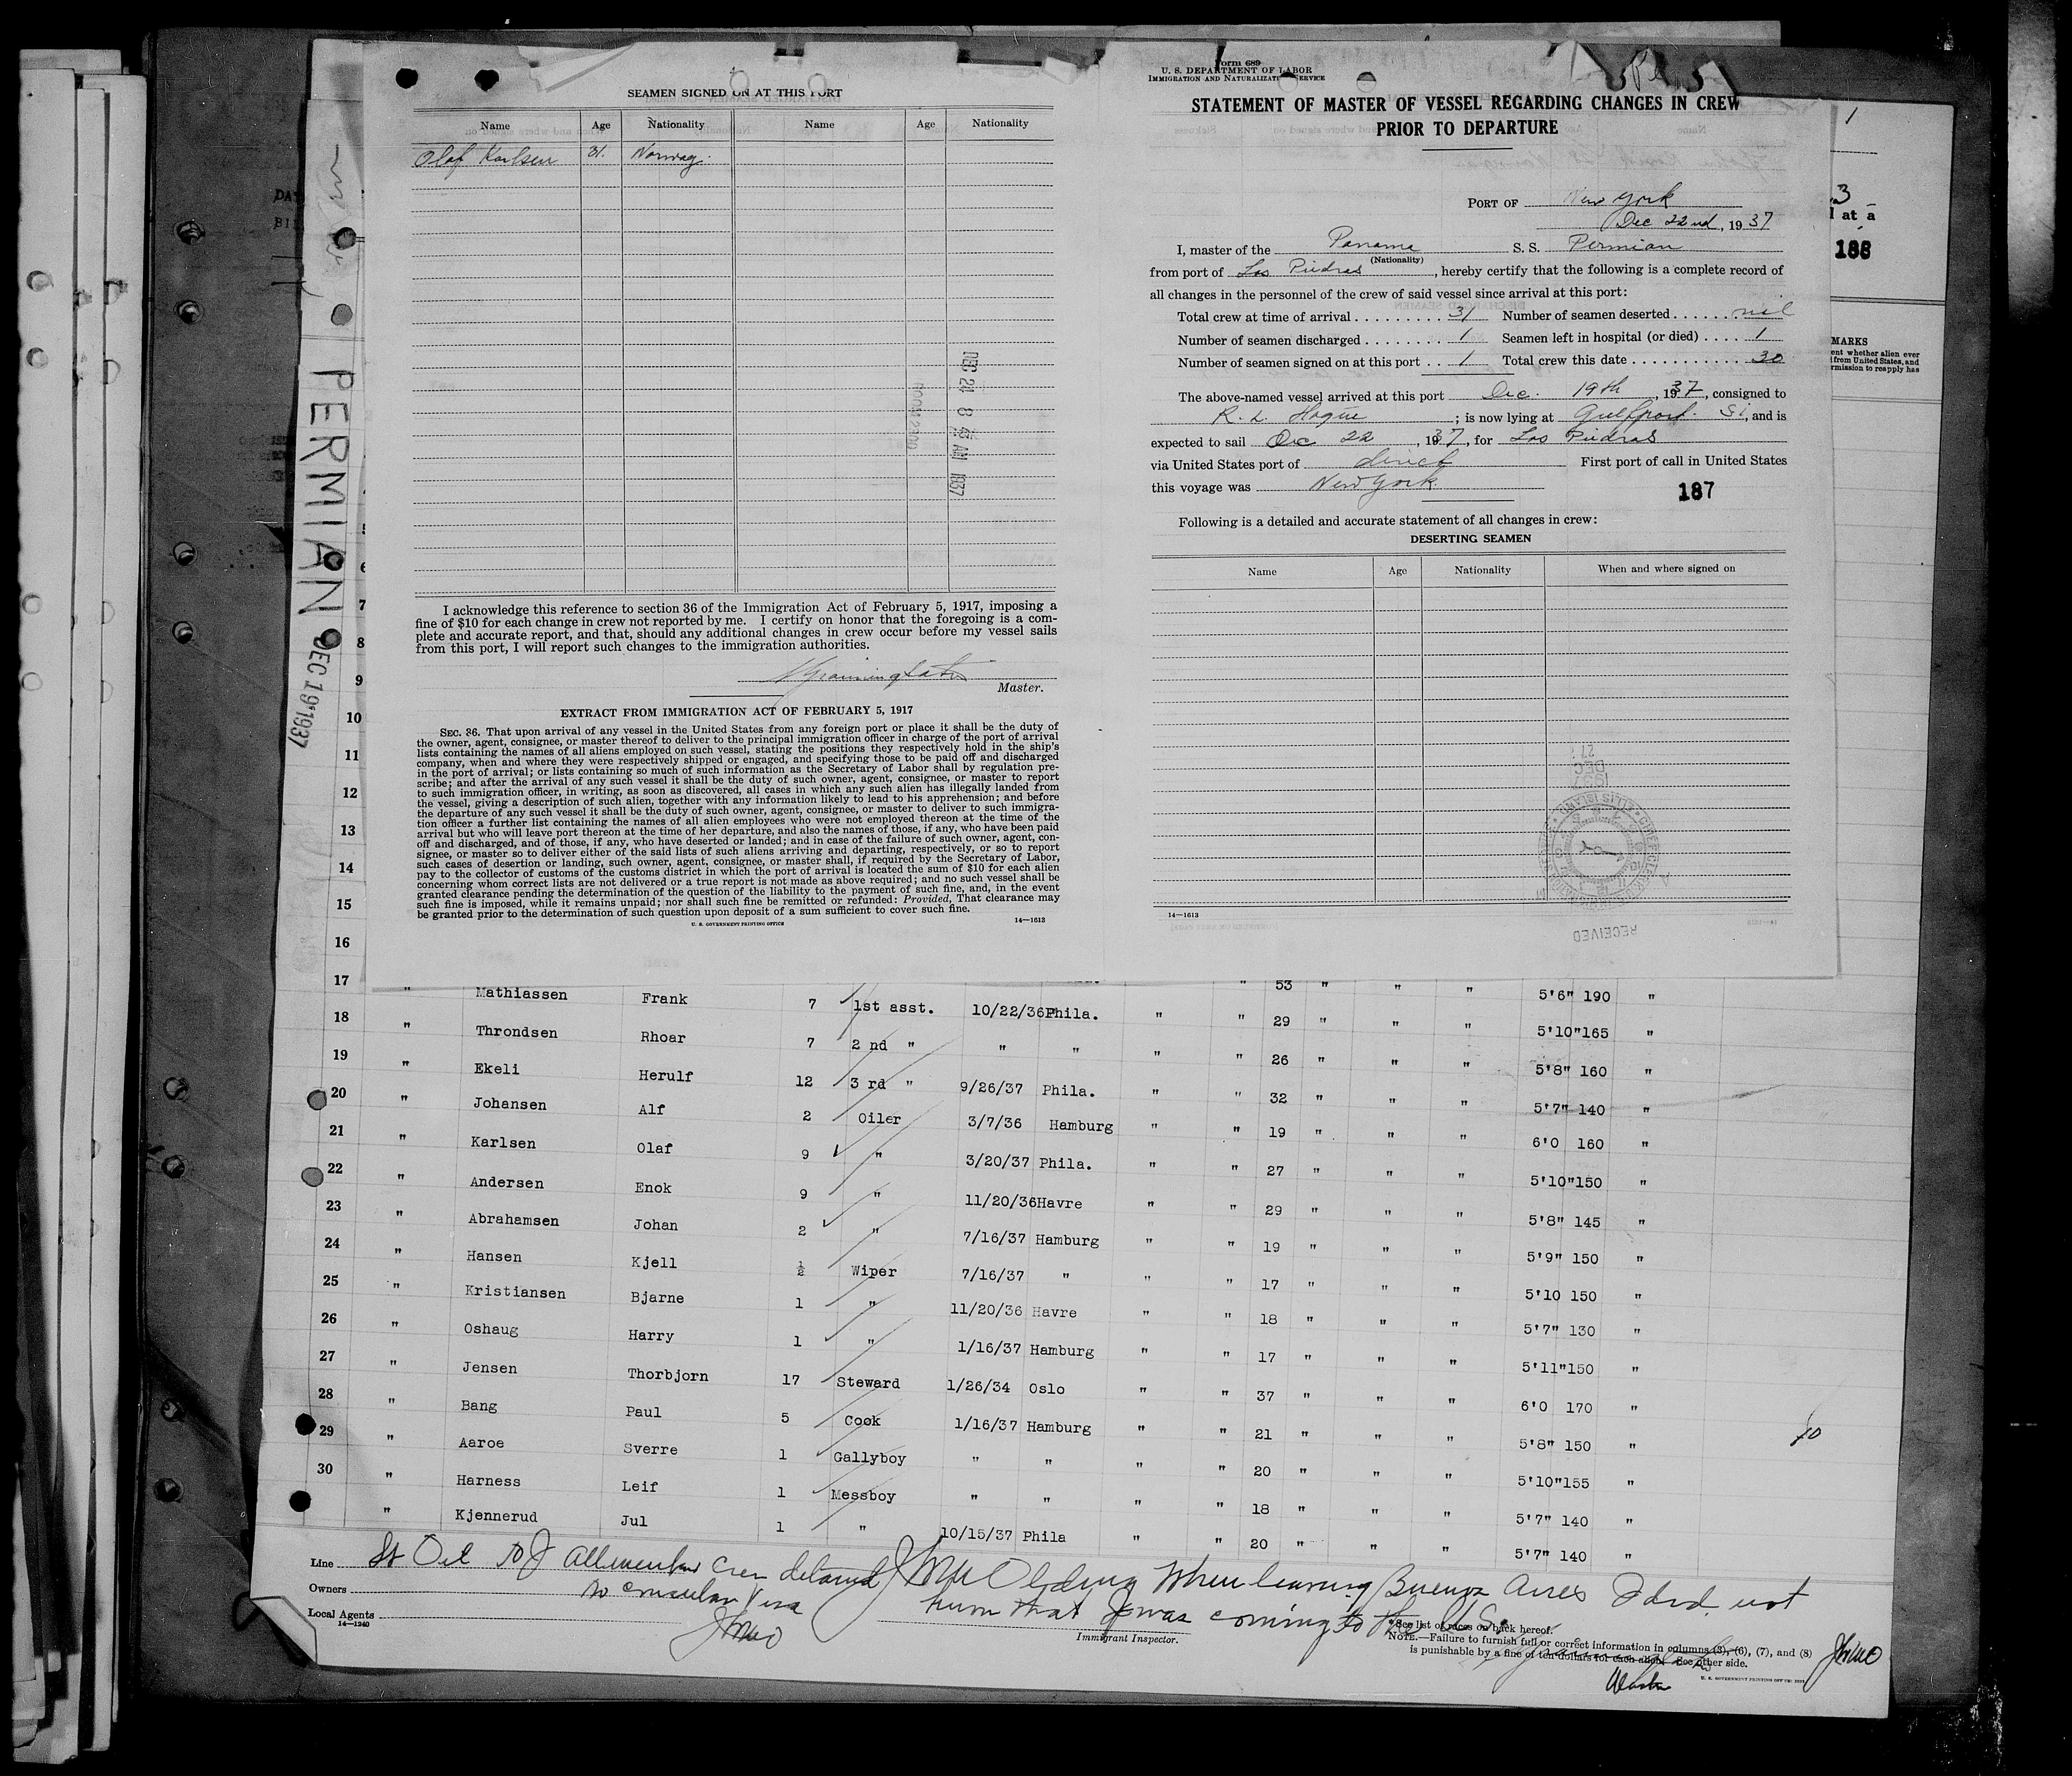 SEAMEN SIGNED ON AT THIS PORT
Name Age Nationality Name Age Nationality
Olaf Karlsen 31. Norway.
DEC 24 8 43 AM 1937
ROOM 2300
I acknowledge this reference to section 36 of the Immigration Act of February 5, 1917, imposing a
fine of $10 for each change in crew not reported by me. I certify on honor that the foregoing is a com-
plete and accurate report, and that, should any additional changes in crew occur before my vessel sails
from this port, I will report such changes to the immigration authorities.
Master.
EXTRACT FROM IMMIGRATION ACT OF FEBRUARY 5, 1917
SEC. 36. That upon arrival of any vessel in the United States from any foreign port or place it shall be the duty of
the owner, agent, consignee, or master thereof to deliver to the principal immigration officer in charge of the port of arrival
lists containing the names of all aliens employed on such vessel, stating the positions they respectively hold in the ship's
company, when and where they were respectively shipped or engaged, and specifying those to be paid off and discharged
in the port of arrival; or lists containing so much of such information as the Secretary of Labor shall by regulation pre-
scribe; and after the arrival of any such vessel it shall be the duty of such owner, agent, consignee, or master to report
to such immigration officer, in writing, as soon as discovered, all cases in which any such alien has illegally landed from
the vessel, giving a description of such alien, together with any information likely to lead to his apprehension; and before
the departure of any such vessel it shall be the duty of such owner, agent, consignee, or master to deliver to such immigra-
tion officer a further list containing the names of all alien employees who were not employed thereon at the time of the
arrival but who will leave port thereon at the time of her departure, and also the names of those, if any, who have been paid
off and discharged, and of those, if any, who have deserted or landed; and in case of the failure of such owner, agent, con-
signee, or master so to deliver either of the said lists of such aliens arriving and departing, respectively, or so to report
such cases of desertion or landing, such owner, agent, consignee, or master shall, if required by the Secretary of Labor,
pay to the collector of customs of the customs district in which the port of arrival is located the sum of $10 for each alien
concerning whom correct lists are not delivered or a true report is not made as above required; and no such vessel shall be
granted clearance pending the determination of the question of the liability to the payment of such fine, and, in the event
such fine is imposed, while it remains unpaid; nor shall such fine be remitted or refunded: Provided, That clearance may
be granted prior to the determination of such question upon deposit of a sum sufficient to cover such fine.
U. S. GOVERNMENT PRINTING OFFICE 14—1613
Form 689
U. S. DEPARTMENT OF LABOR
IMMIGRATION AND NATURALIZATION SERVICE
STATEMENT OF MASTER OF VESSEL REGARDING CHANGES IN CREW
PRIOR TO DEPARTURE
PORT OF New York
Dec 22nd, 1937
I, master of the Panama S. S. Permian
(Nationality)
from port of Las Piedras, hereby certify that the following is a complete record of
all changes in the personnel of the crew of said vessel since arrival at this port:
Total crew at time of arrival . . . . . . . . . 31 Number of seamen deserted . . . . . . nil
Number of seamen discharged . . . . . . . . 1 Seamen left in hospital (or died) . . . . 1
Number of seamen signed on at this port . . 1 Total crew this date . . . . . . . . . . . . 30
The above-named vessel arrived at this port Dec. 19th, 1937, consigned to
R. L. Hague; is now lying at Gulfport. SI, and is
expected to sail Dec 22, 1937, for Las Piedras
via United States port of direct First port of call in United States
this voyage was New York.
187
Following is a detailed and accurate statement of all changes in crew:
DESERTING SEAMEN
Name Age Nationality When and where signed on
14—1613
RECEIVED
1
3
l at a
188
MARKS
ent whether alien ever
from United States, and
rmission to reapply has
PERMIAN
DEC 19 1937
7
8
9
10
11
12
13
14
15
16
17 " 53 " " "
18 " Mathiassen Frank 7 1st asst. 10/22/36 Phila. " " 29 " " " 5'6" 190 "
19 " Throndsen Rhoar 7 2 nd " " " " " 26 " " " 5'10" 165 "
20 " Ekeli Herulf 12 3 rd " 9/26/37 Phila. " " 32 " " " 5'8" 160 "
21 " Johansen Alf 2 Oiler 3/7/36 Hamburg " " 19 " " " 5'7" 140 "
22 " Karlsen Olaf 9 " 3/20/37 Phila. " " 27 " " " 6'0 160 "
23 " Andersen Enok 9 " 11/20/36 Havre " " 29 " " " 5'10" 150 "
24 " Abrahamsen Johan 2 " 7/16/37 Hamburg " " 19 " " " 5'8" 145 "
25 " Hansen Kjell ½ Wiper 7/16/37 " " " 17 " " " 5'9" 150 "
26 " Kristiansen Bjarne 1 " 11/20/36 Havre " " 18 " " " 5'10 150 "
27 " Oshaug Harry 1 " 1/16/37 Hamburg " " 17 " " " 5'7" 130 "
28 " Jensen Thorbjorn 17 Steward 1/26/34 Oslo " " 37 " " " 5'11" 150 "
29 " Bang Paul 5 Cook 1/16/37 Hamburg " " 21 " " " 6'0 170 "
30 " Aaroe Sverre 1 Gallyboy " " " " 20 " " " 5'8" 150 "
" Harness Leif 1 Messboy " " " " 18 " " " 5'10" 155 "
" Kjennerud Jul 1 " 10/15/37 Phila " " 20 " " " 5'7" 140 "
5'7" 140 "
Line St Oil NJ All member crew detained When leaving Buenos Aires I did not
Owners no consular visa
that I was coming to the U.S.
Local Agents
14—1240
Immigrant Inspector.
*See list of races on back hereof.
NOTE.—Failure to furnish full or correct information in columns (3), (6), (7), and (8)
is punishable by a fine of ten dollars for each alien. See other side.
Master